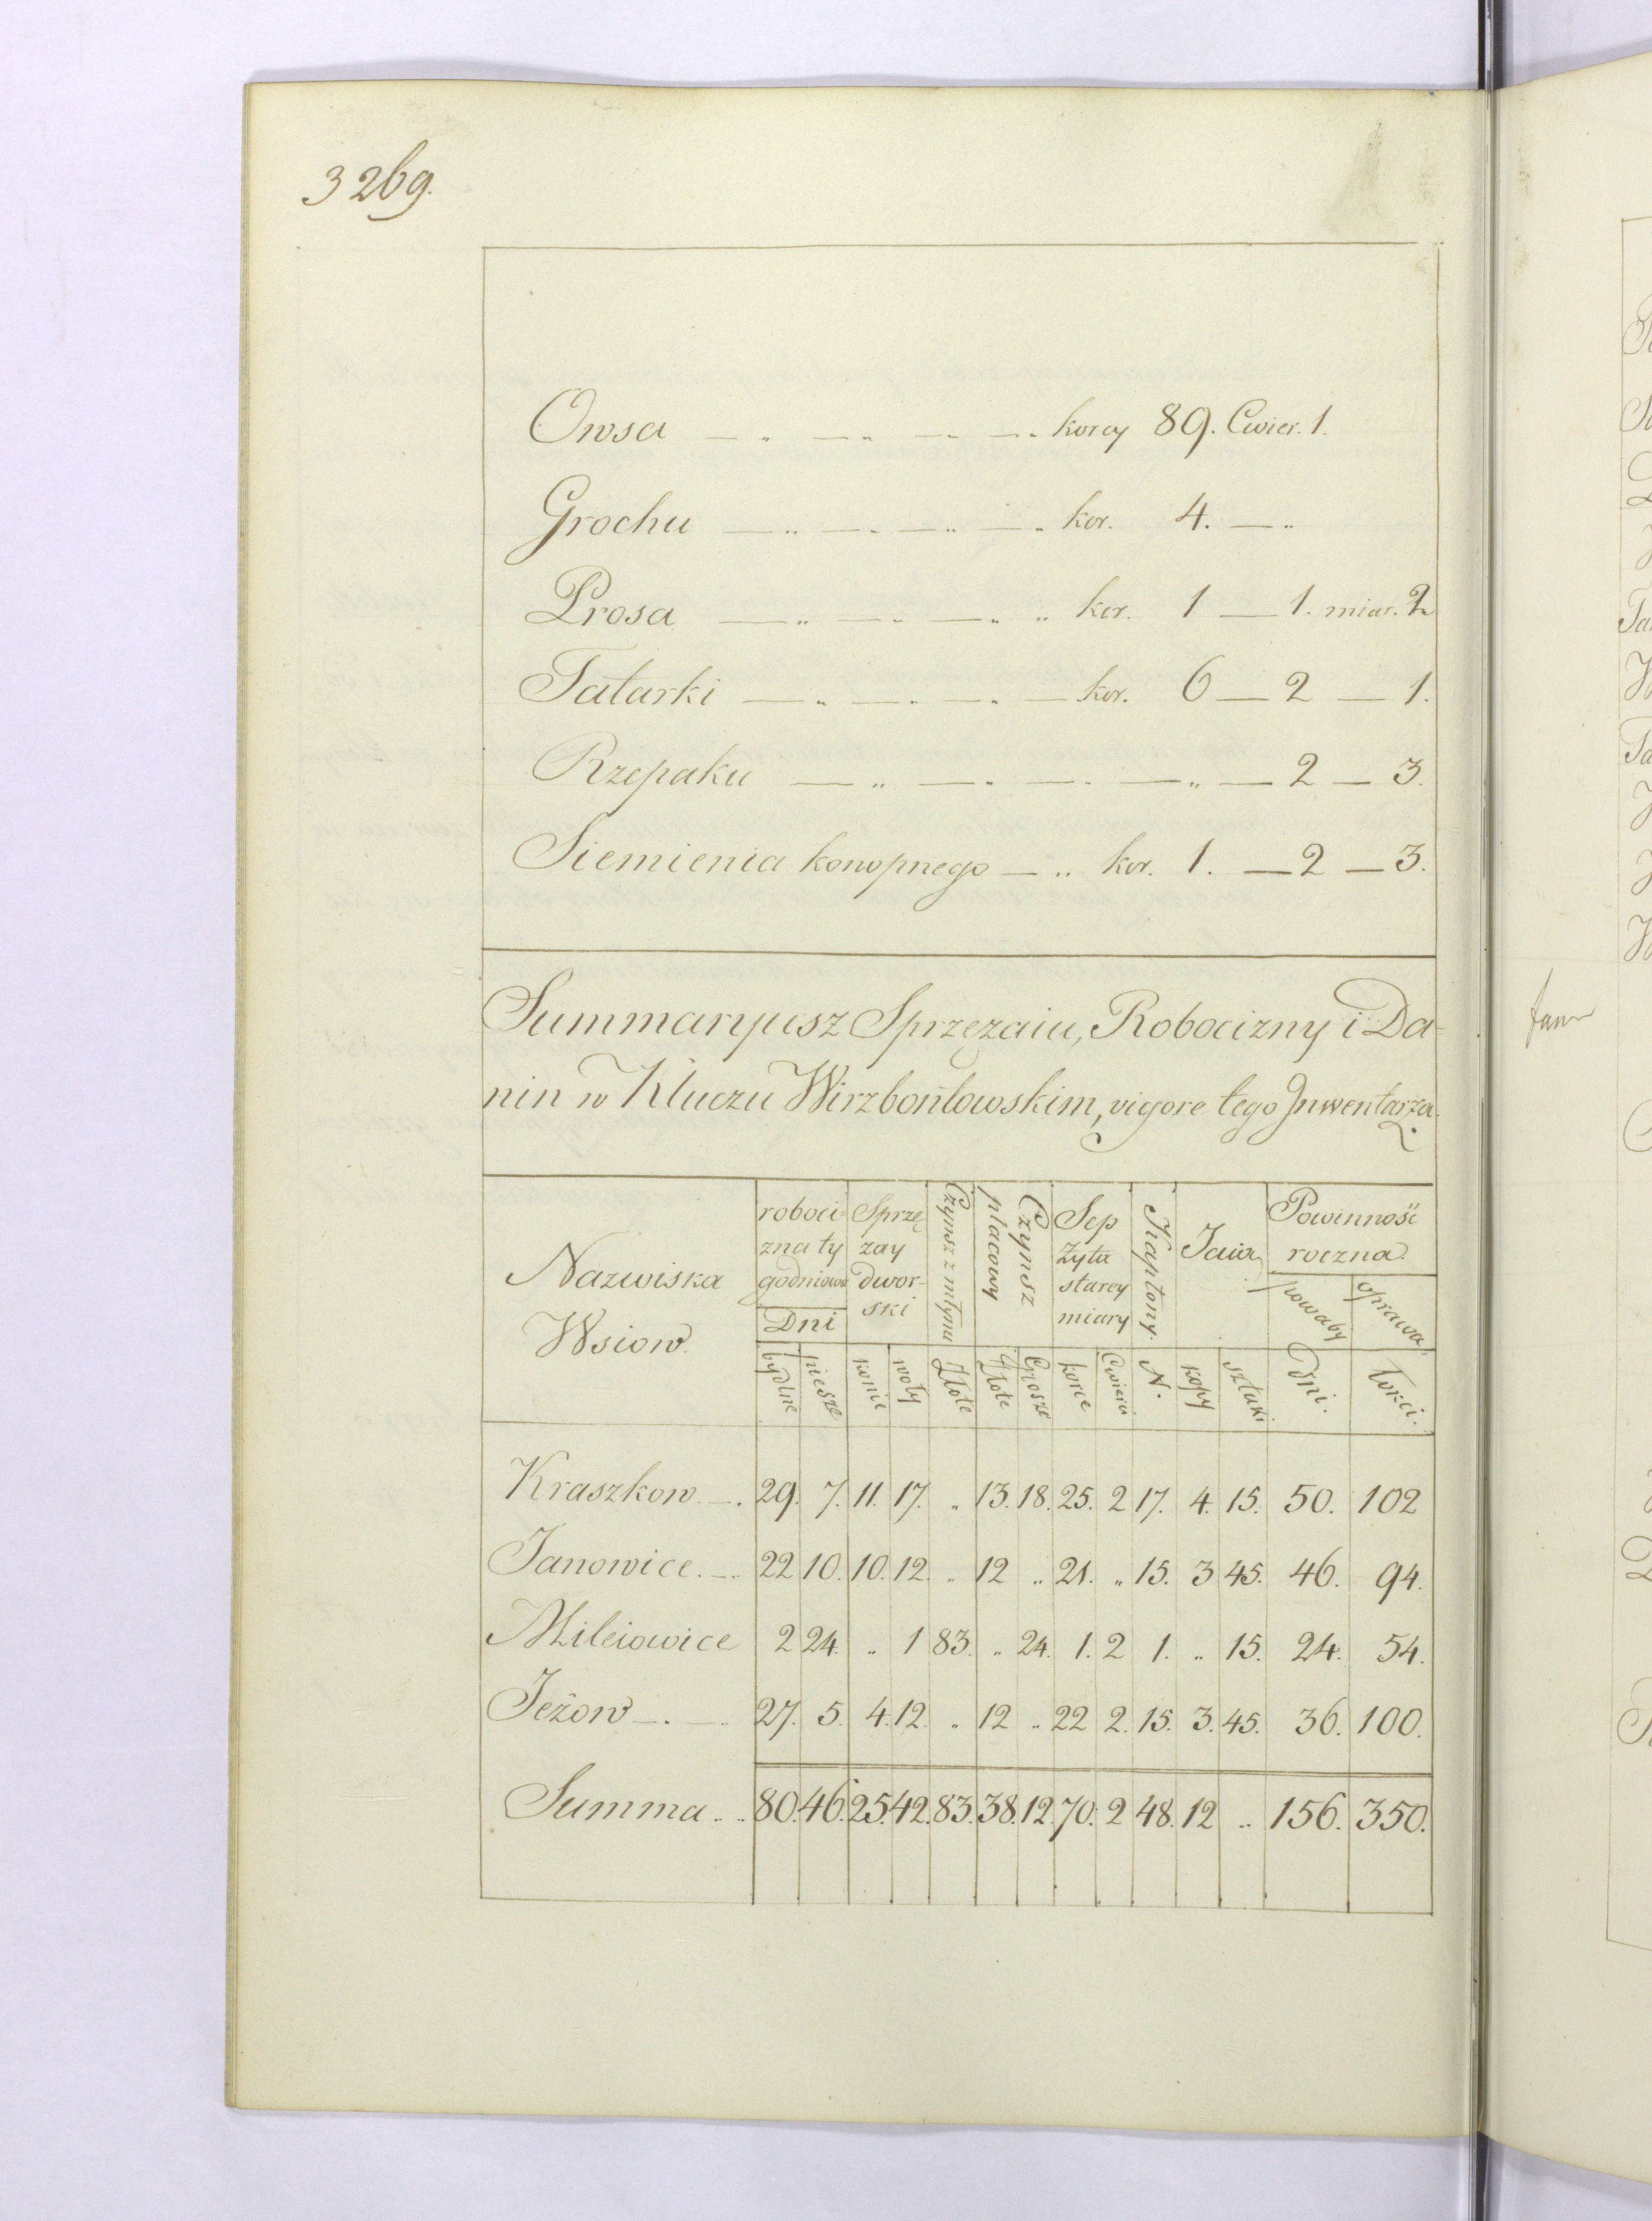 3269.
Owsa — .. — .. — .. — .. korcy 89. Cwier. 1.
Grochu — .. — .. — .. — .. kor. 4. — ..
Prosa — .. — .. — .. .. kor. 1 — 1. miar. 2
Tatarki — .. — .. — .. — kor. 6 — 2 — 1.
Rzepaku — .. — . — . — .. — 2 — 3.
Siemienia konopnego — .. kor. 1. — 2 — 3.
Summaryusz Sprzęzaiu, Robocizny i Da-
nin w Kluczu Wirzbońtowskim, vigore tego Inwentarza.
Nazwiska Wsiow.
roboci- zna ty godniowa
Dni
bydlne piesze
Sprzę zay dwor- ski
konie woły
Czynsz z młyna
Złote
Czynsz placowy
Złote Grosze
Sep Zyta starey miary
korce Cwierci
Kapłony.
N.
Jaia
kopy sztuki
Powinność roczna
powaby oprawa
Dni. Łokci.
Kraszkow. —. 29. 7. 11. 17. .. 13. 18. 25. 2 17. 4. 15. 50. 102
Janowice. — .. 22 10. 10. 12. .. 12 .. 21. .. 15. 3 45. 46. 94.
Mileiowice 2 24. .. 1 83. .. 24. 1. 2 1. .. 15. 24. 54.
Jeżow —. — 27. 5. 4. 12. .. 12 .. 22 2. 15. 3. 45. 36. 100.
Summa .. .. 80. 46. 25. 42. 83. 38. 12. 70. 2 48. 12 .. 156. 350.